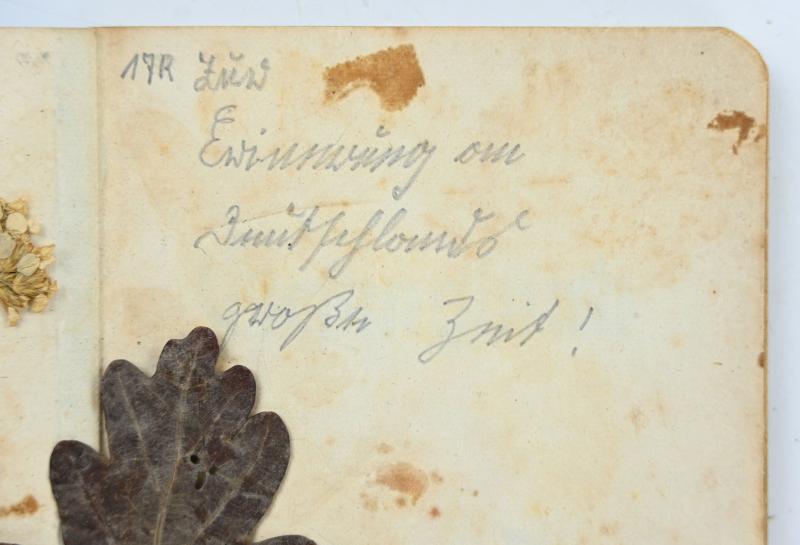 17R Zur
Erinnerung an
Deutschlands
große Zeit!